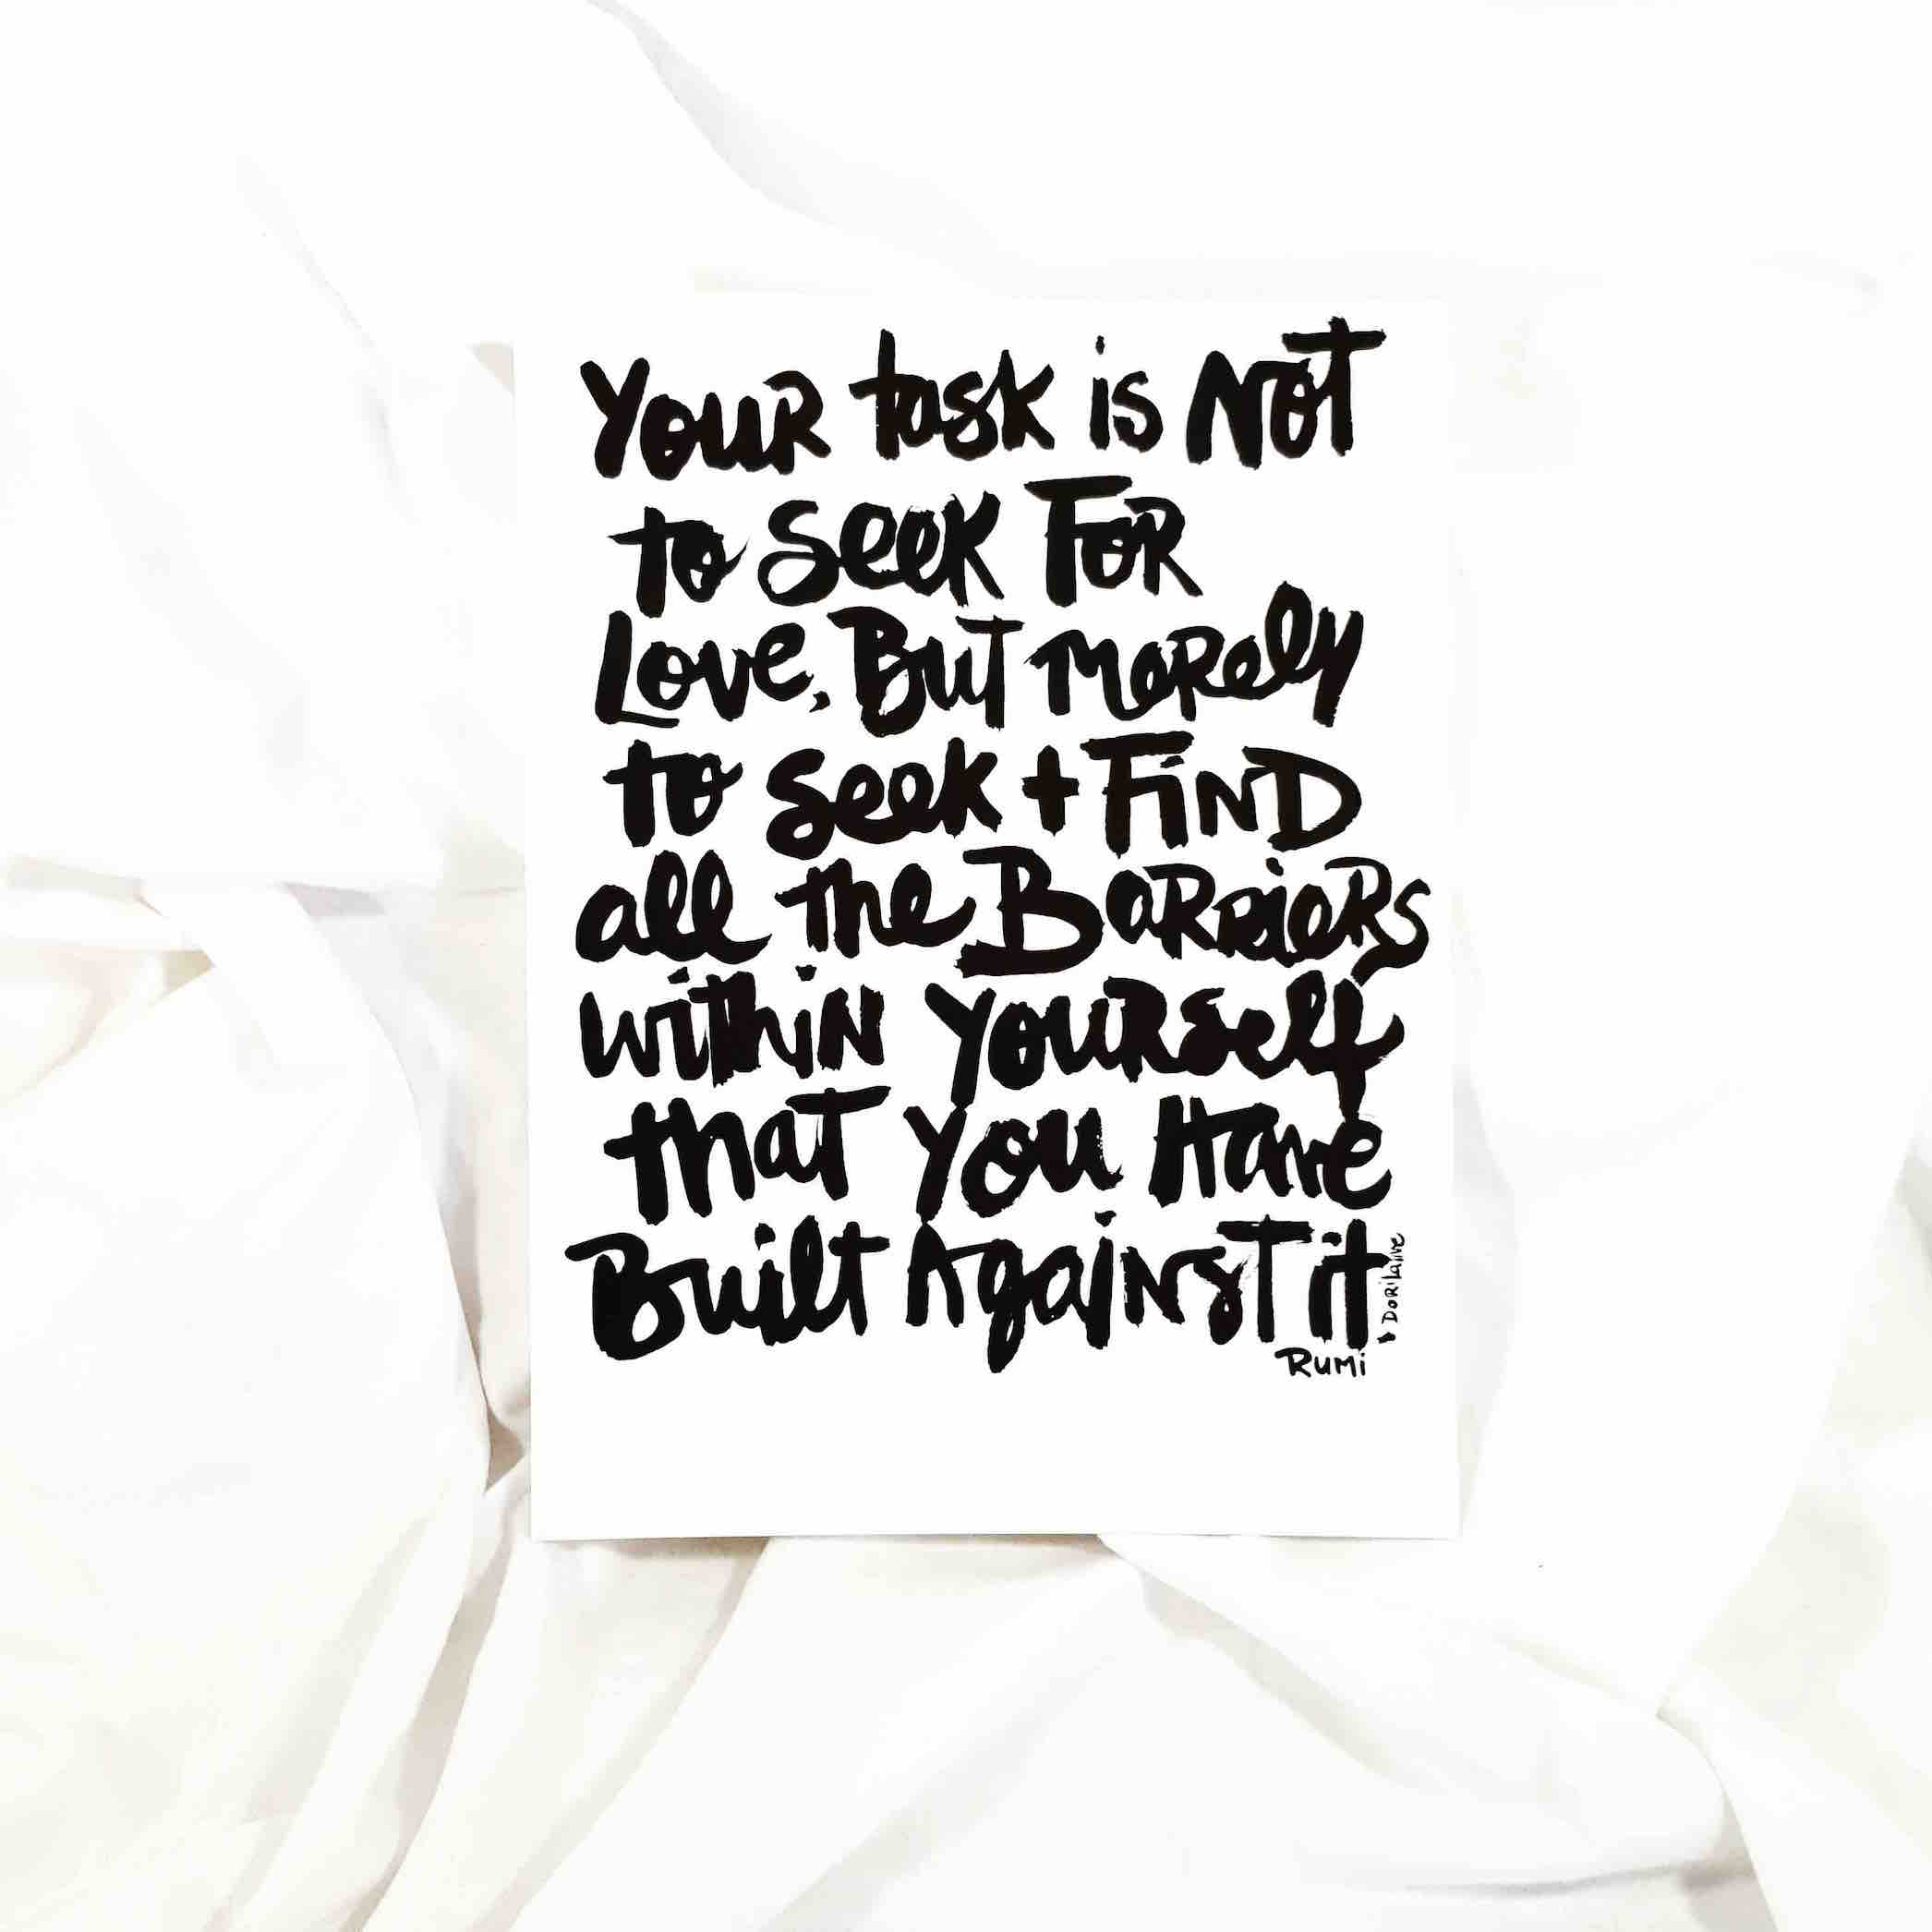 Your task is Not
to seek For
Love, But merely
to seek + FinD
all the BaRRieRs
within yourself
that you Have
Built AgainsT it
Rumi
DoriLaine